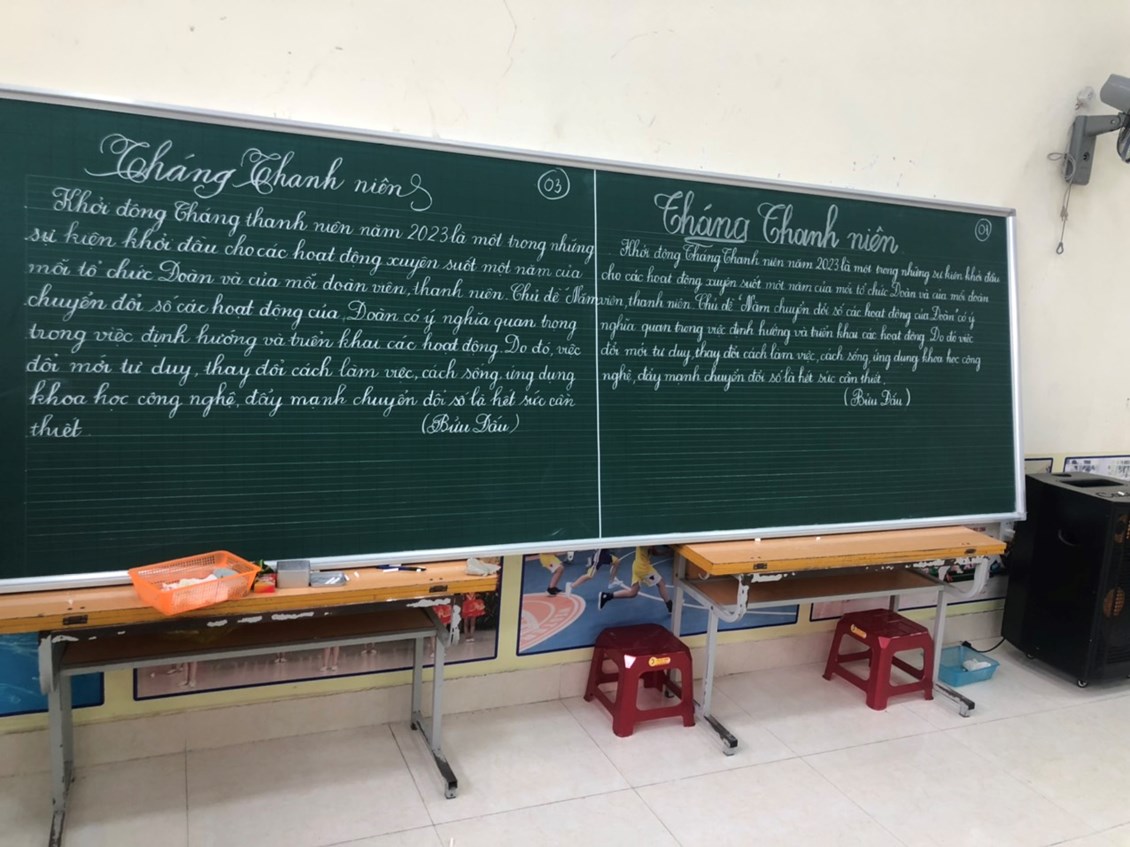 Tháng Thanh niên
03
Khởi động Tháng thanh niên năm 2023 là một trong những
sự kiện khởi đầu cho các hoạt động xuyên suốt một năm của
mỗi tổ chức Đoàn và của mỗi đoàn viên, thanh niên. Chủ đề "Năm
chuyển đổi số các hoạt động của Đoàn có ý nghĩa quan trọng
trong việc định hướng và triển khai các hoạt động. Do đó, việc
đổi mới tư duy, thay đổi cách làm việc, cách sống, ứng dụng
khoa học công nghệ, đẩy mạnh chuyển đổi số là hết sức cần
thiết.
(Bửu Dấu)
Tháng Thanh niên
04
Khởi động Tháng Thanh niên năm 2023 là một trong những sự kiện khởi đầu
cho các hoạt động xuyên suốt một năm của mỗi tổ chức Đoàn và của mỗi đoàn
viên, thanh niên. Chủ đề "Năm chuyển đổi số các hoạt động của Đoàn có ý
nghĩa quan trọng việc định hướng và triển khai các hoạt động. Do đó việc
đổi mới tư duy, thay đổi cách làm việc, cách sống, ứng dụng khoa học công
nghệ, đẩy mạnh chuyển đổi số là hết sức cần thiết.
(Bửu Dấu)